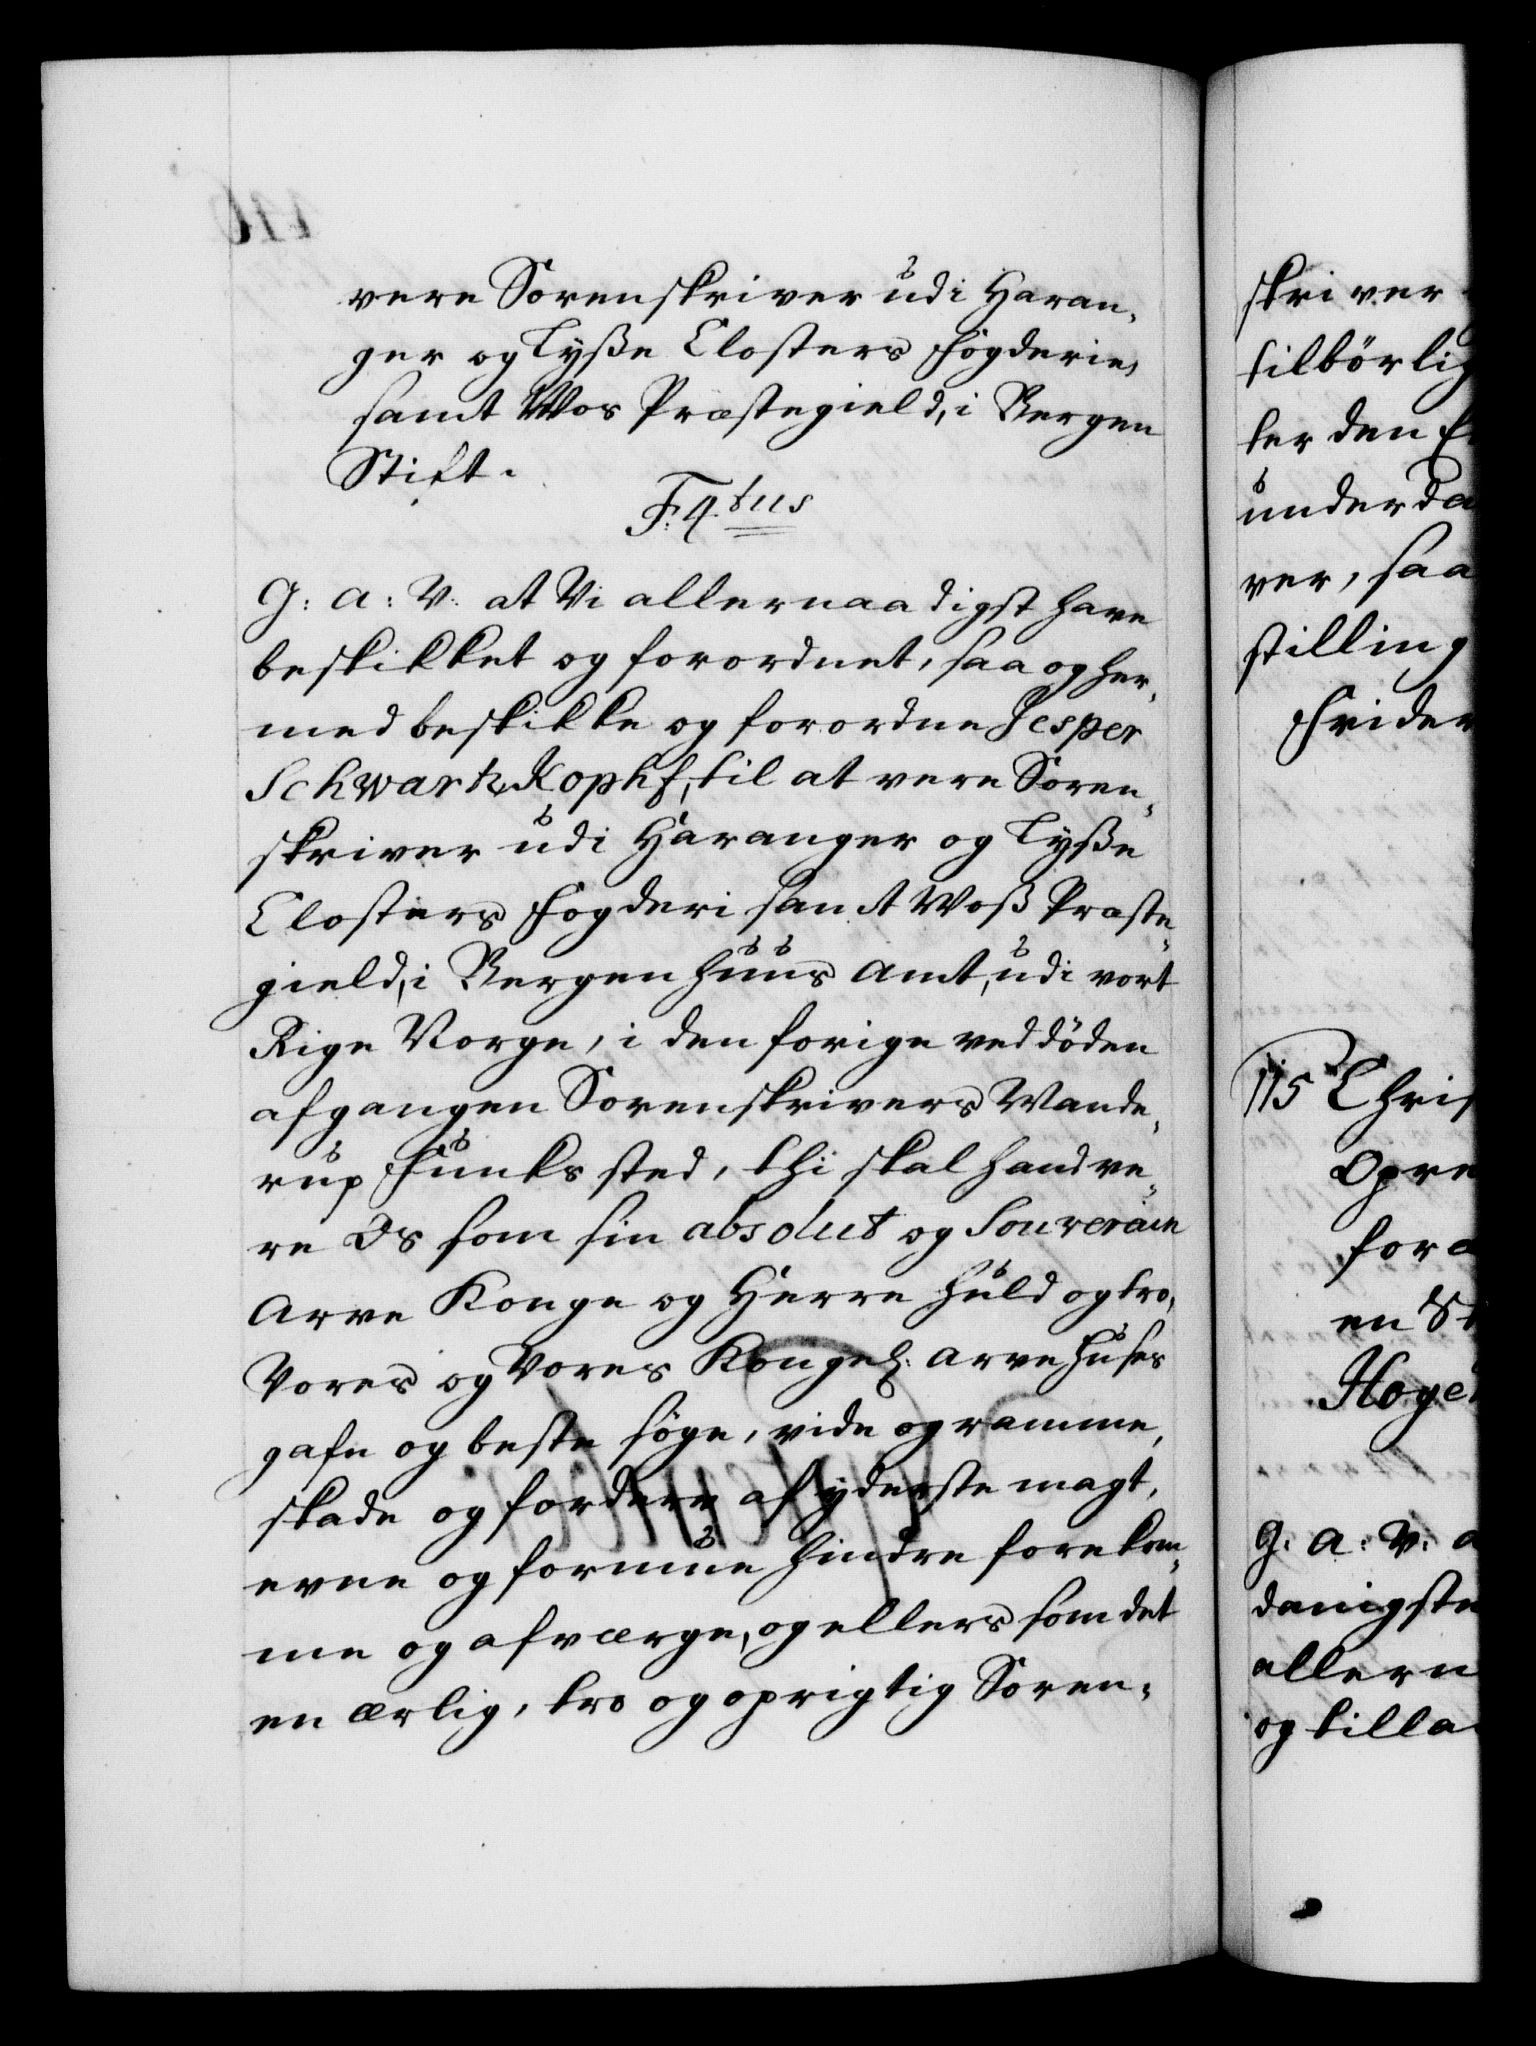 vere Sorenskriver udi Haran,
ger og Lyße Closters Fogderie,
samt Wos Præstegield, i Bergen
Stift.
F: 4.tus
G: A: V: at Vi allernaadigst have
beskikket og forordnet, saa og her,
med beskikke og forordne Jesper
Schwartz Kophf, til at vere Soren,,
skriver udi Haranger og Lyße
Closters Fogderi samt Woß Præste,,
gield, i Bergenhuus Amt, udi vort
Rige Norge, i den forige ved döden
afgangen Sorenskrivers Wande,,
rup Funks sted, thi skal hand ve,,
re Os som sin absolut og Souverain
Arve Konge og Herre huld og tro,
Vores og Vores Kongel: Arve Huses
gafn og beste söge, vide og ramme,
skade og forderv af yderste magt,
evne og formue hindre forekom,,
me og afværge, og ellers som det
en ærlig, tro og oprigtig Soren,,
skriver
tilbörlig
ter den
underda
ver, saa
stilling
Frider
115 Chris
Opre
for
en St
Hoye
G: A: V: a
danigste
allern
og tilla